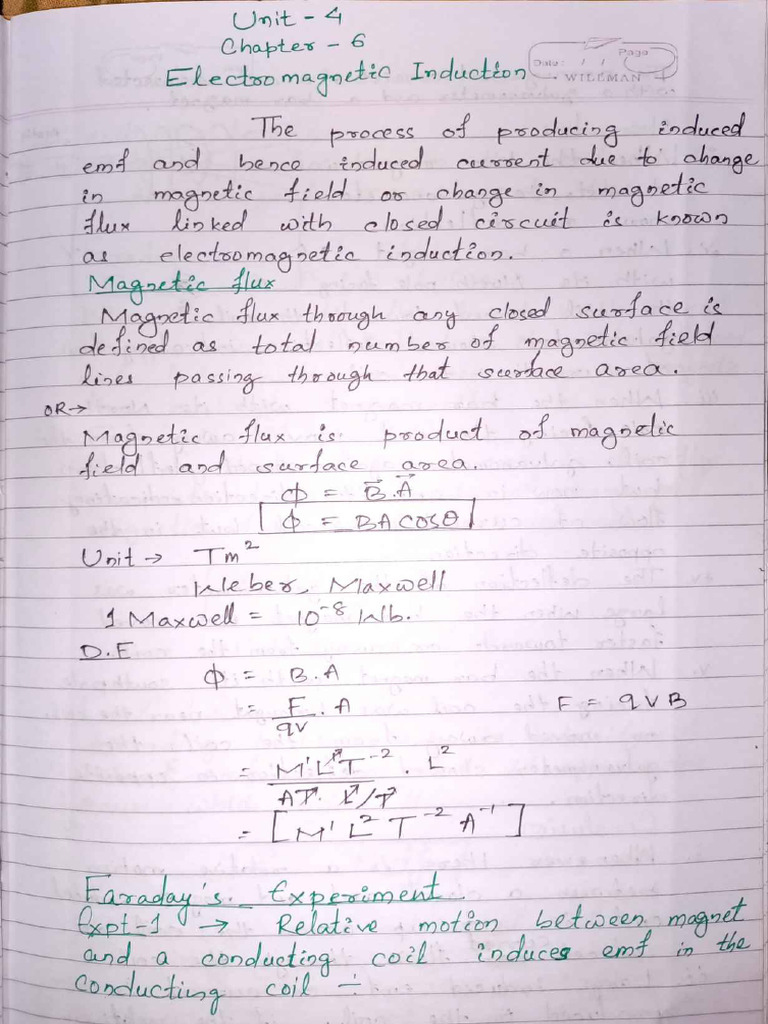 Unit - 4
Chapter - 6
Electromagnetic Induction
Date: / / Page
WILLMAN
The process of producing induced
emf and hence induced current due to change
in magnetic field or change in magnetic
flux linked with closed circuit is known
as electromagnetic induction.
Magnetic flux
Magnetic flux through any closed surface is
defined as total number of magnetic field
lines passing through that surface area.
OR→
Magnetic flux is product of magnetic
field and surface area.
ϕ = B⃗.A⃗
ϕ = BA cosθ
Unit → Tm²
Weber, Maxwell
1 Maxwell = 10⁻⁸ Wb.
D.F
ϕ = B.A
= F/qv . A F = qvB
= M¹L¹T⁻²/AT. L/T . L²
= [M¹ L² T⁻² A⁻¹]
Faraday's Experiment
Expt-1 → Relative motion between magnet
and a conducting coil induces emf in the
conducting coil ÷